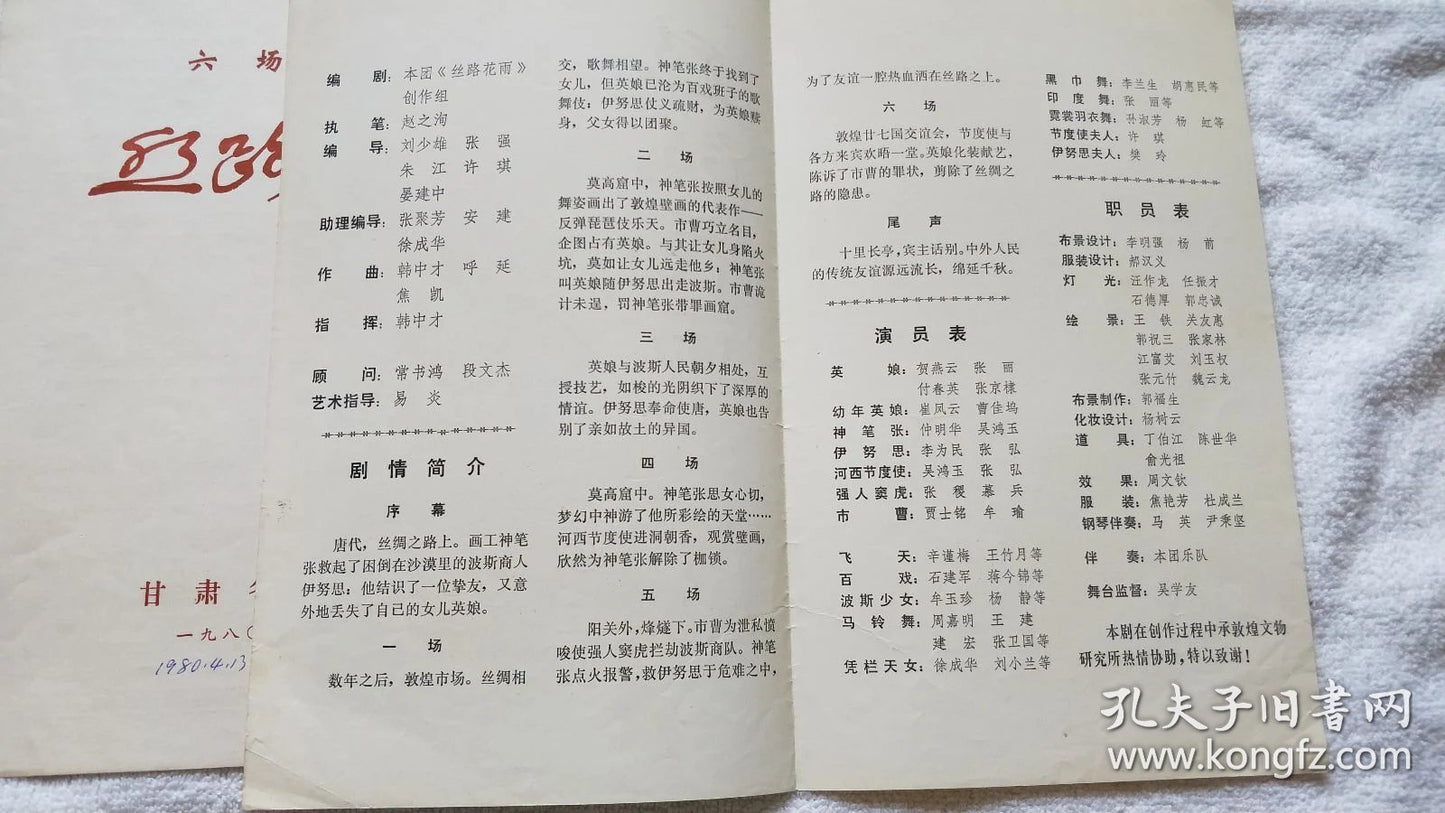 六 场
丝路
甘 肃
一九八〇
1980.4.13
编 剧：本团《丝路花雨》
创作组
执 笔：赵之洵
编 导：刘少雄 张 强
朱 江 许 琪
晏建中
助理编导：张聚芳 安 建
徐成华
作 曲：韩中才 呼 延
焦 凯
指 挥：韩中才
顾 问：常书鸿 段文杰
艺术指导：易 炎
剧 情 简 介
序 幕
唐代，丝绸之路上。画工神笔
张救起了困倒在沙漠里的波斯商人
伊努思：他结识了一位挚友，又意
外地丢失了自己的女儿英娘。
一 场
数年之后，敦煌市场。丝绸相
交，歌舞相望。神笔张终于找到了
女儿，但英娘已沦为百戏班子的歌
舞伎；伊努思仗义疏财，为英娘赎
身，父女得以团聚。
二 场
莫高窟中，神笔张按照女儿的
舞姿画出了敦煌壁画的代表作——
反弹琵琶伎乐天。市曹巧立名目，
企图占有英娘。与其让女儿身陷火
坑，莫如让女儿远走他乡；神笔张
叫英娘随伊努思出走波斯。市曹诡
计未逞，罚神笔张带罪画窟。
三 场
英娘与波斯人民朝夕相处，互
授技艺，如梭的光阴织下了深厚的
情谊。伊努思奉命使唐，英娘也告
别了亲如故土的异国。
四 场
莫高窟中。神笔张思女心切，
梦幻中神游了他所彩绘的天堂……
河西节度使进洞朝香，观赏壁画，
欣然为神笔张解除了枷锁。
五 场
阳关外，烽燧下。市曹为泄私愤
唆使强人窦虎拦劫波斯商队。神笔
张点火报警，救伊努思于危难之中，
为了友谊一腔热血洒在丝路之上。
六 场
敦煌廿七国交谊会，节度使与
各方来宾欢晤一堂。英娘化装献艺，
陈诉了市曹的罪状，剪除了丝绸之
路的隐患。
尾 声
十里长亭，宾主话别。中外人民
的传统友谊源远流长，绵延千秋。
演 员 表
英 娘：贺燕云 张 丽
付春英 张京棣
幼年英娘：崔凤云 曹佳坞
神 笔 张：仲明华 吴鸿玉
伊 努 思：李为民 张 弘
河西节度使：吴鸿玉 张 弘
强人窦虎：张 稷 慕 兵
市 曹：贾士铭 牟 瑜
飞 天：辛谨梅 王竹月等
百 戏：石建军 蒋今锦等
波斯少女：牟玉珍 杨 静等
马 铃 舞：周嘉明 王 建
建 宏 张卫国等
凭栏天女：徐成华 刘小兰等
黑 巾 舞：李兰生 胡惠民等
印 度 舞：张 丽等
霓裳羽衣舞：孙淑芳 杨 虹等
节度使夫人：许 琪
伊努思夫人：樊 玲
职 员 表
布景设计：李明强 杨 前
服装设计：郝汉义
灯 光：汪作龙 任振才
石德厚 郭忠诚
绘 景：王 铁 关友惠
郭祝三 张家林
江富艾 刘玉权
张元竹 魏云龙
布景制作：郭福生
化妆设计：杨树云
道 具：丁伯江 陈世华
俞光祖
效 果：周文钦
服 装：焦艳芳 杜成兰
钢琴伴奏：马 英 尹乘坚
伴 奏：本团乐队
舞台监督：吴学友
本剧在创作过程中承敦煌文物
研究所热情协助，特以致谢！
孔夫子旧书网
www.kongfz.com